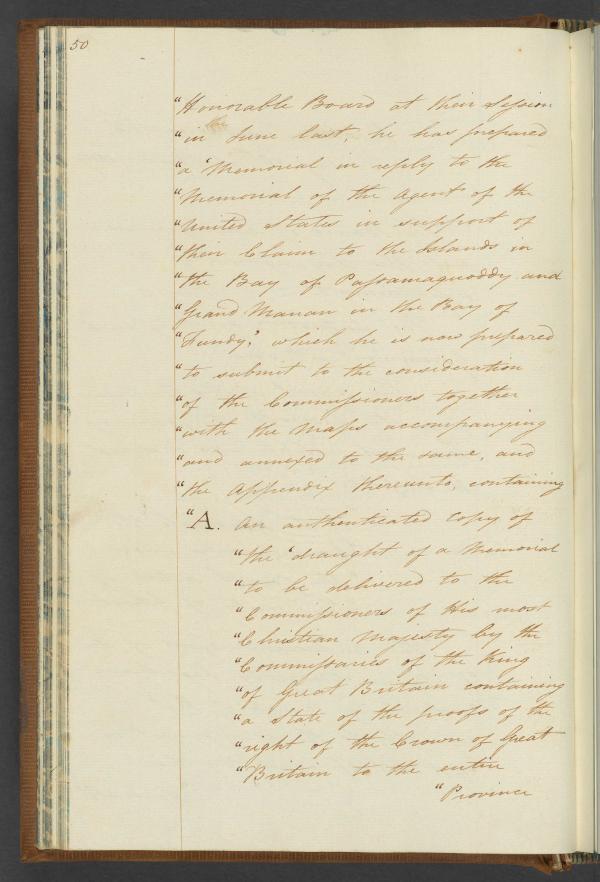 50
"Honorable Board at their Session
"in June last, he has prepared
"a 'Memorial in reply to the
"Memorial of the Agent of the
"United States in support of
"their Claim to the Islands in
"the Bay of Passamaquoddy and
"Grand Manan in the Bay of
"Fundy,' which he is now prepared
"to submit to the consideration
"of the Commissioners together
"with the Maps accompanying
"and annexed to the same, and
"the Appendix thereunto, containing
"A. An authenticated Copy of
"the 'draught of a Memorial
"to be delivered to the
"Commissioners of His most
"Christian Majesty by the
"Commissaries of the King
"of Great Britain containing
"a State of the proofs of the
"right of the Crown of Great
"Britain to the entire
"Province